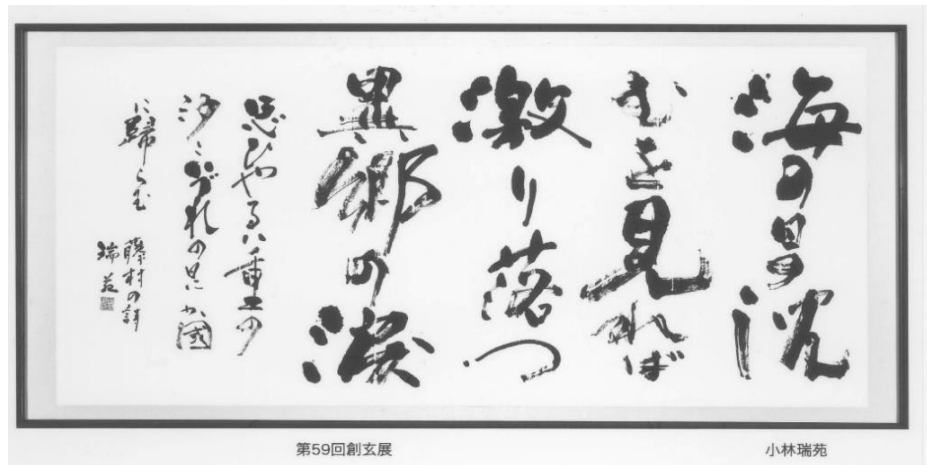 海の日の沈
むを見れば
激り落つ
異郷の涙
思ひやる八重の
汐々いづれの日にか國
に歸らむ
藤村の詩
瑞苑
第59回創玄展
小林瑞苑